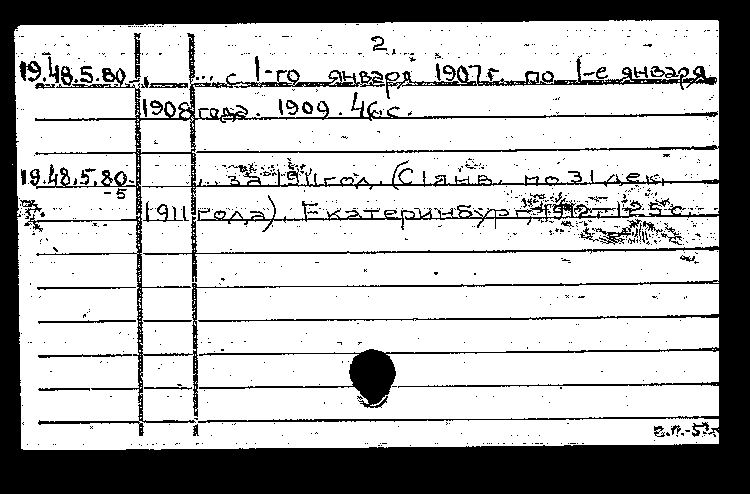 2.
19.48.5.80 ... с 1-го января 1907 г. по 1-е января
1908 года. 1909. 46 с.
19.48.5.80 ... за 1911 год. (С 1 янв. по 31 дек.
-5
1911 года). Екатеринбург, 1912. 125 с.